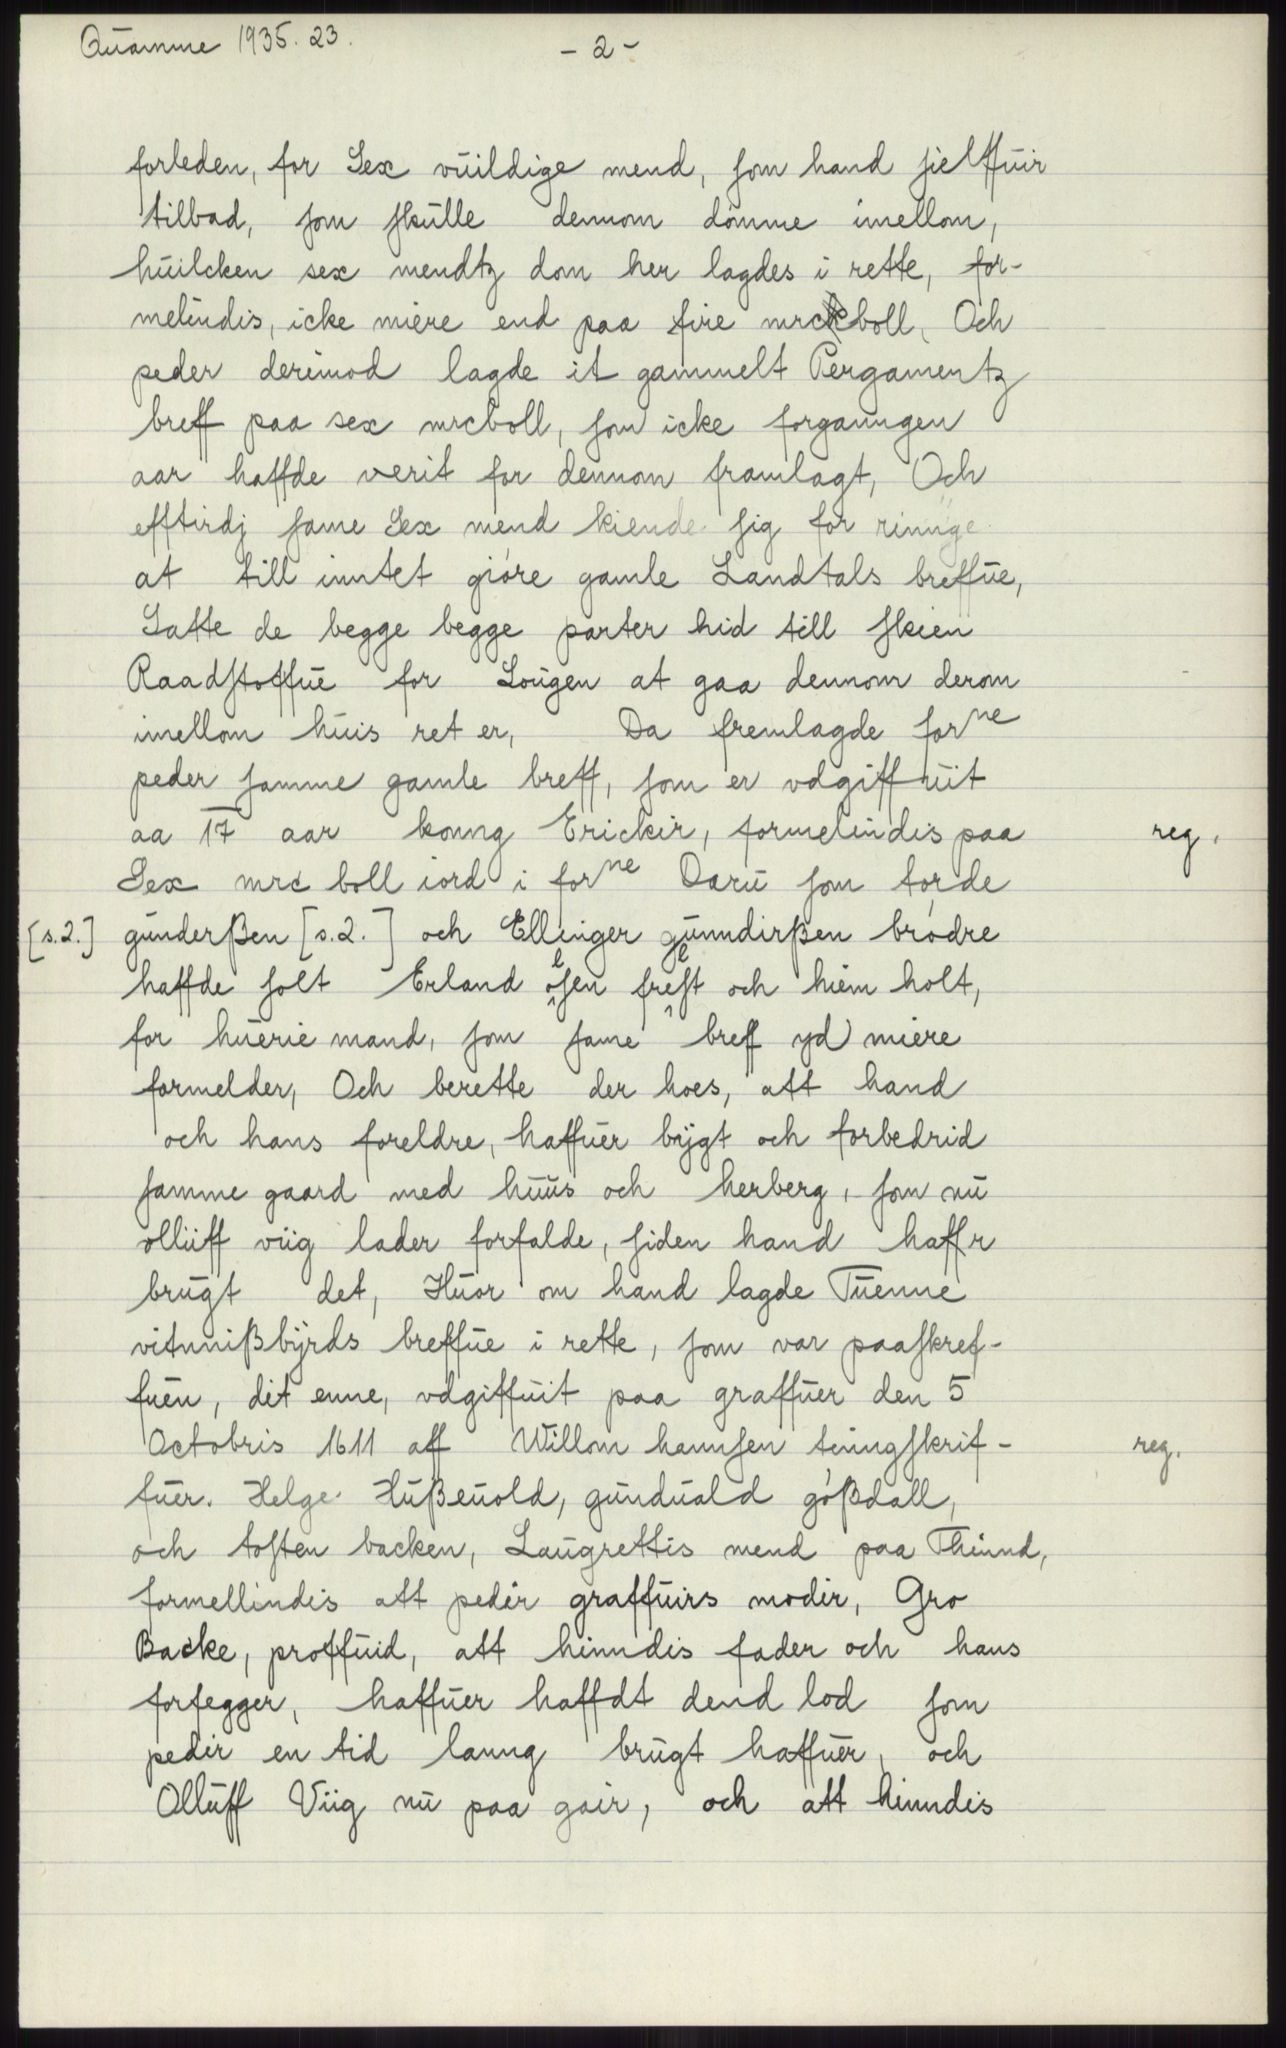 Quamme 1935. 23.
- 2 -
forleden, for Sex vuildige mend, som hand sielffuir
tilbad, som skulle dennom dömme imellom,
huilcken sex mendtz dom her lagdes i rette, for-
melindis, icke miere end paa fire mrckboll, Och
peder derimod lagde it gammelt Pergamentz
breff paa sex mrcboll, som icke forganngen
aar haffde verit for dennom framlagt, Och
efftirdj same Sex mend kiende sig for rinnge
at till inntet giöre gamle Landtals breffue,
Satte de begge begge parter hid till skien
Raadstoffue for Lougen at gaa dennom derom
imellom huis ret er, Da fremlagde forne
peder samme gamle breff, som er vdgiffuit
aa 17 aar konng Erickir, formelindis paa
reg.
Sex mrc boll iord i forne Daru som torde
[s.2.] gunderßen [s.2.] och Ellinger gunndirßen brödre
haffde solt Erland olsen frelst och hiem holt,
for huerie mand, som same breff yd miere
formelder, Och berette der hoes, att hand
och hans foreldre, haffuer bÿgt och forbedrid
samme gaard med huus och herberg, som nu
olluff viig lader forfalde, siden hand haffr
brugt det, Huor om hand lagde Tuenne
vitnnißbÿrds breffue i rette, som var paaskref-
fuen, dit enne, vdgiffuit paa graffuer den 5
Octobris 1611 aff Willom hannsen tinngskrif-
reg.
fuer. Helge Hußeuold, gunduald gößdall,
och tosten backen, Laugrettis mend paa Thinnd,
formellindis att pedir graffuirs modir, Gro
Backe, proffuid, att hinndis fader och hans
forfegger, haffuer haffdt dend lod som
pedir en tid lanng brugt haffuer, och
Olluff Viig nu paa goir, och att hinndis